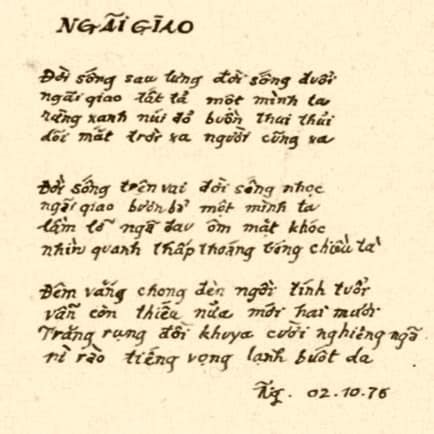 NGÃI GIAO
Đời sống sau lưng đời sống đuổi
ngãi giao tất tả một mình ta
rừng xanh núi đỏ buồn thui thủi
đôi mắt trời xa người cũng xa
Đời sống trên vai đời sống nhọc
ngãi giao buồn bã một mình ta
lầm lỡ ngã đau ôm mặt khóc
nhìn quanh thấp thoáng bóng chiều tà
Đêm vắng chong đèn ngồi tính tuổi
vẫn còn thiếu nửa mới hai mươi
Trăng rụng đồi khuya cười nghiêng ngã.
rì rào tiếng vọng lạnh buốt da
02.10.76